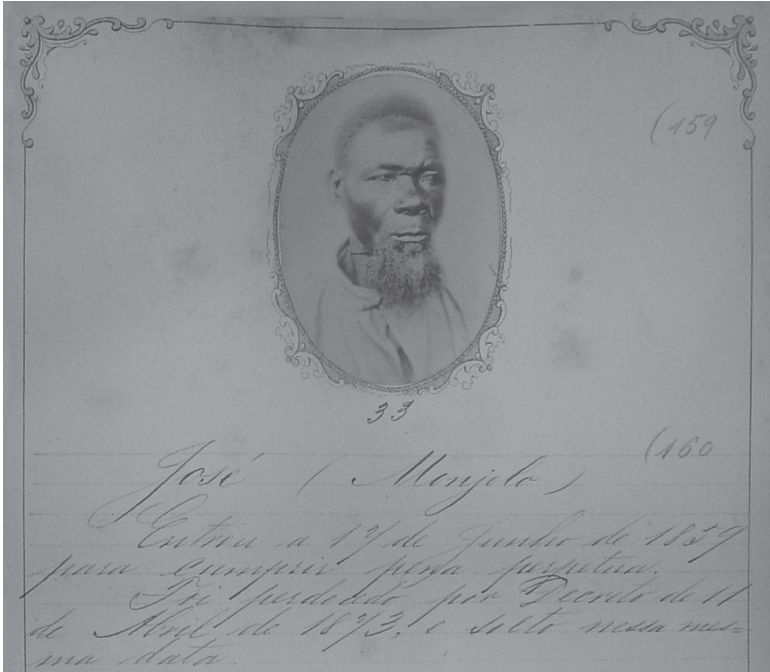 (159
33
(160
José (Monjolo)
Entrou a 17 de Junho de 1859
para cumprir pena perpetua.
Foi perdoado por Decreto de 11
de Abril de 1873, e solto nessa mes=
ma data